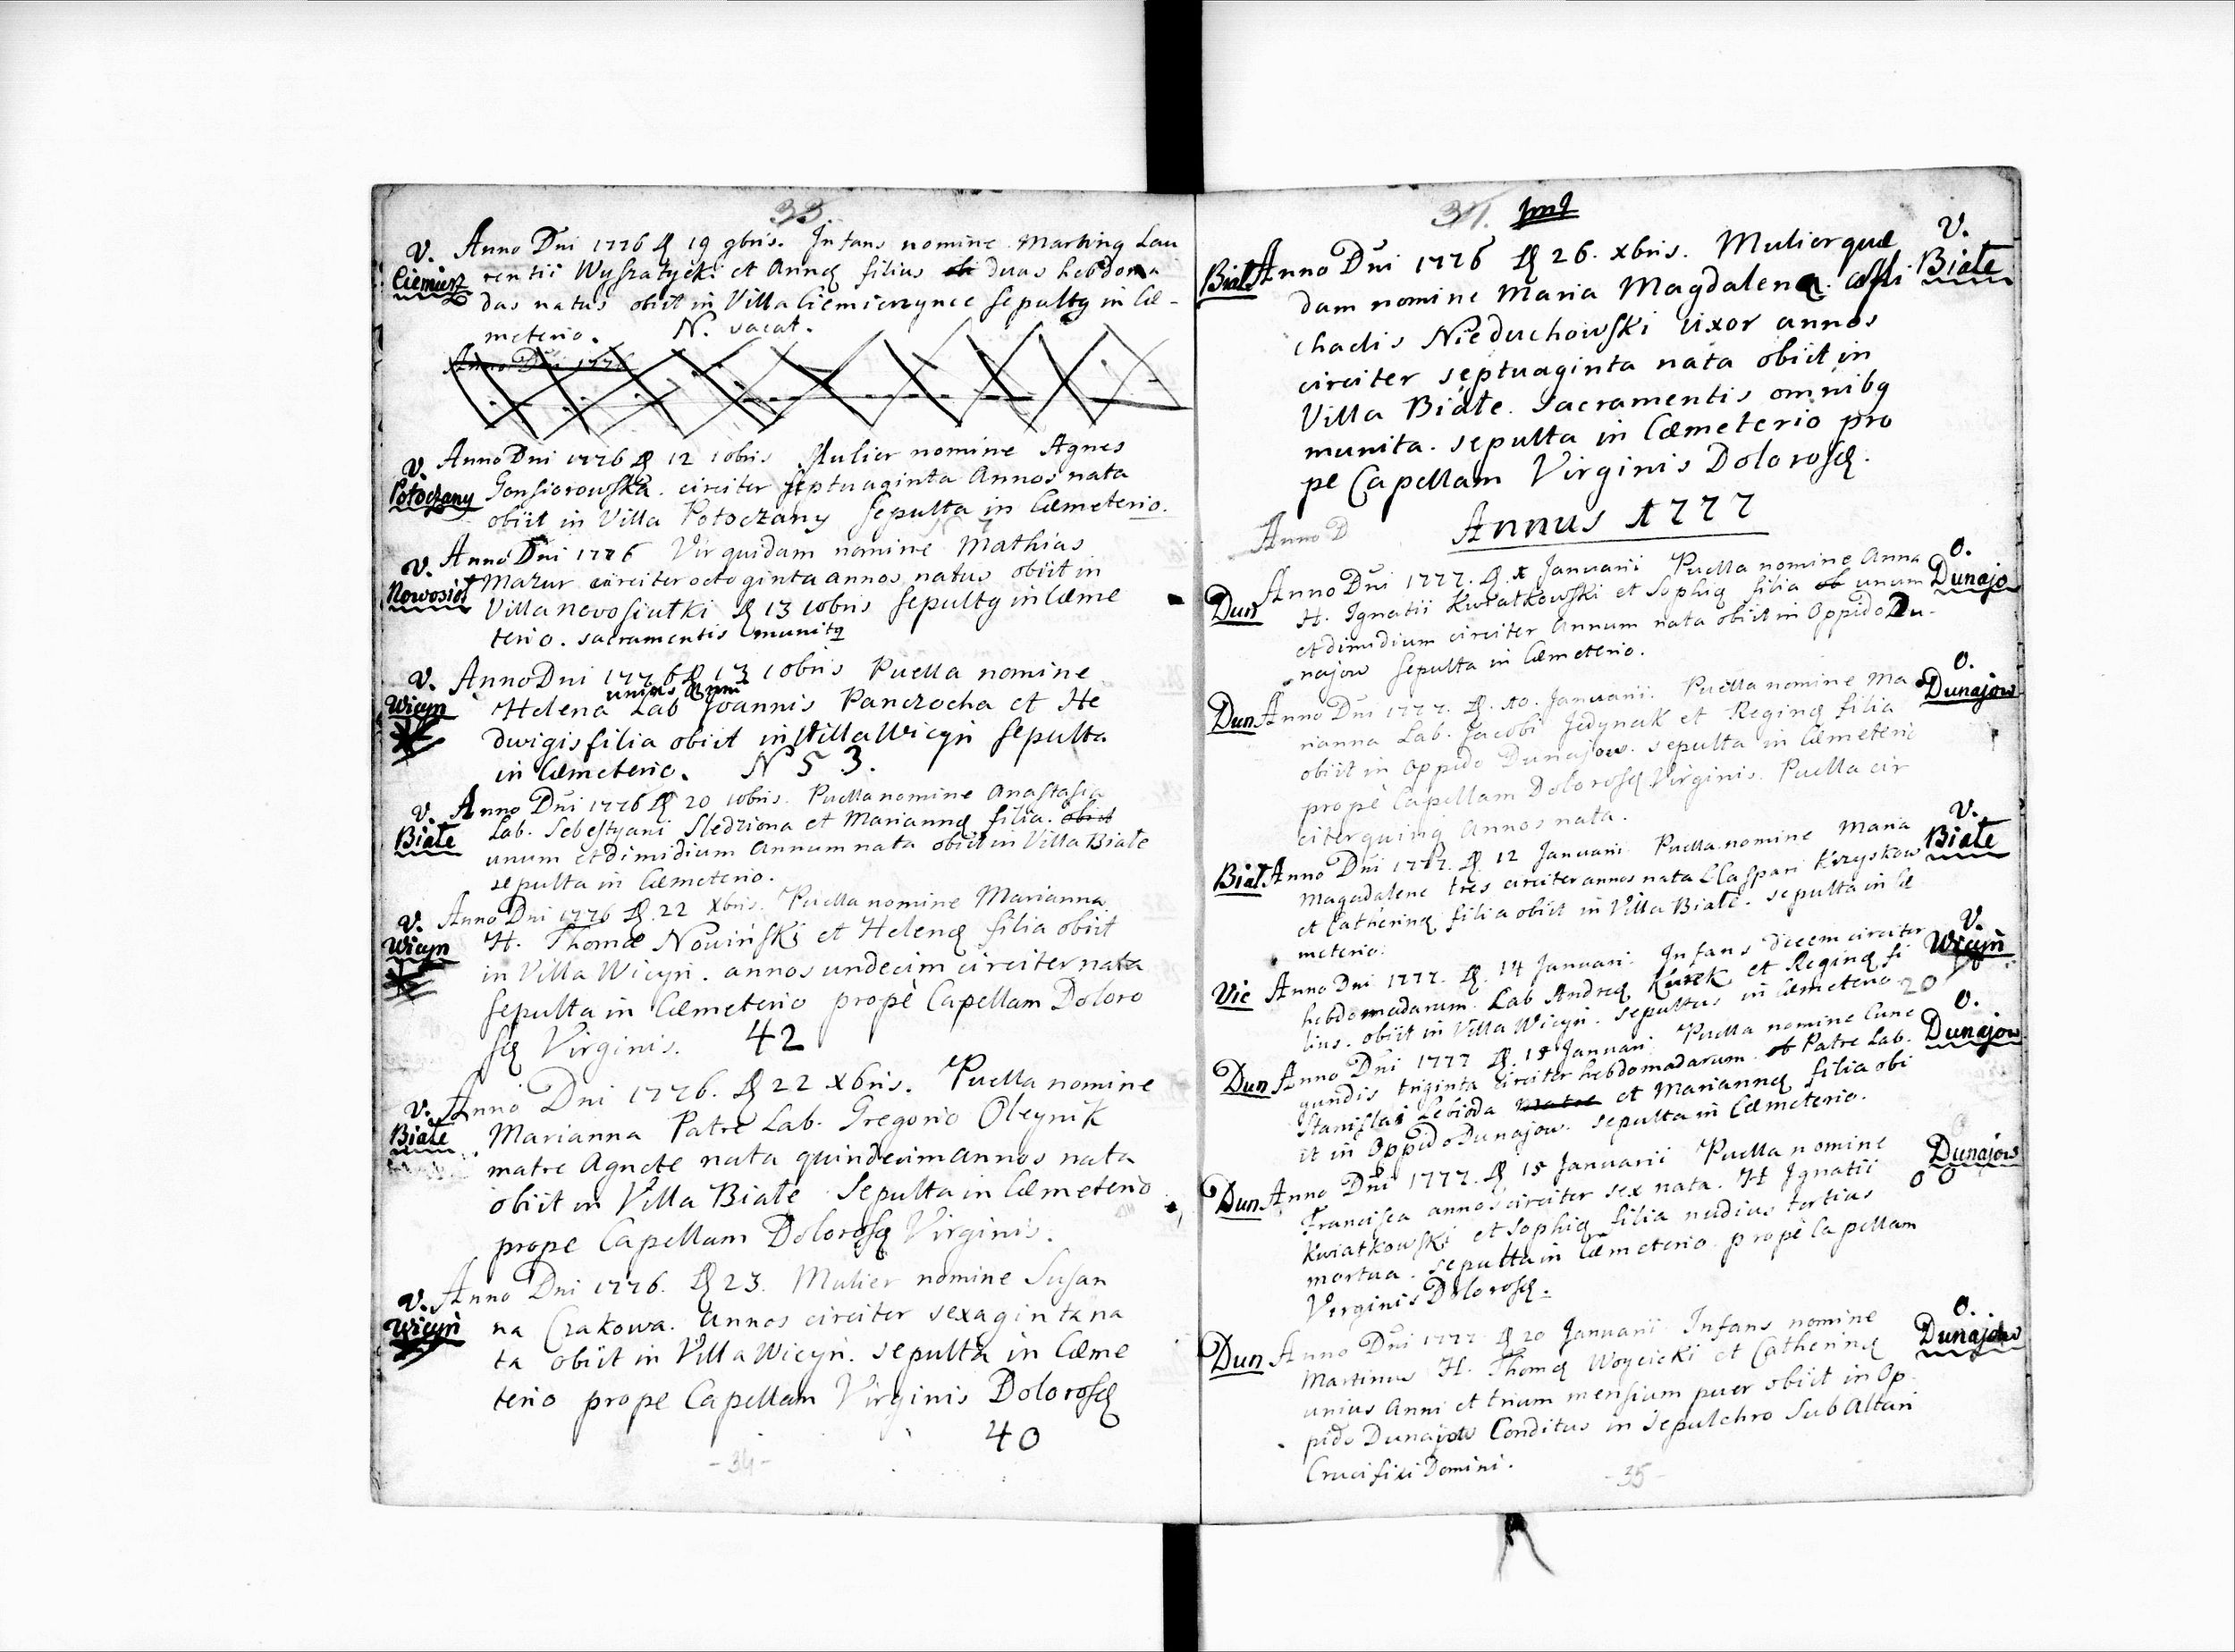 33.
V. Anno Dni 1776 D 19 9bris. Infans nomine Martinq Lau
Ciemierz rentii Wyszatycki et Annę filius ob duas hebdoma
das natus obiit in Villa Ciemierzynce Sepultq in Cæ-
meterio. N. vacat.
Anno Dni 1776
V. Anno Dni 1776 D 12 10bris Mulier nomine Agnes
Potoczany Gonsiorowska. circiter Septuaginta Annos nata
obiit in Villa Potoczany Sepulta in Cæmeterio.
V. Anno Dni 1776 Vir quidam nomine Mathias
Nowosioł Mazur circiter octoginta annos natus obiit in
Villa Novosiułki D 13 10bris Sepultq in Cæme
terio. sacramentis munitq
V. Anno Dni 1776 D 13 10bris Puella nomine
unius Anni
Wicyn Helena Lab Joannis Panczocha et He
dwigis filia obiit in Villa Wicyń Sepulta
in Cæmeterio. N 53.
V. Anno Dni 1776 D 20 10bris. Puella nomine Anastasia
Białe Lab. Sebestyani Sledziona et Mariannę filia. obiit
unum et dimidium Annum nata obiit in Villa Białe
sepulta in Cæmeterio.
V. Anno Dni 1776 D. 22 Xbris. Puella nomine Marianna
Wicyn H. Thomæ Nowiński et Helenę filia obiit
in Villa Wicyń. annos undecim circiter nata
Sepulta in Cæmeterio propè Capellam Doloro
sę Virginis. 42
V. Anno Dni 1776. D 22 xbris. Puella nomine
Białe Marianna Patre Lab. Gregorio Oleynik
matre Agnete nata quindecim annos nata
obiit in Villa Białe Sepulta in Cæmeterio
prope Capellam Dolorosę Virginis.
V. Anno Dni 1776. D 23. Mulier nomine Susan
Wicyń na Czakowa. annos circiter sexaginta na
ta obiit in Villa Wicyń. sepulta in Cæme
terio prope Capellam Virginis Dolorosę
40
- 34 -
Biał Anno Dni 1776 D 26. xbris. Mulier quæ V.
dam nomine Maria Magdalena. Białe
chaelis Nieduchowski uxor annos
circiter septuaginta nata obiit in
Villa Białe. Sacramentis omnibq
munita. sepulta in Cæmeterio pro
pe Capellam Virginis Dolorosę.
Anno D Annus 1777
Anno Dni 1777. D. Januarii Puella nomine Anna O.
Dun H. Ignatii Kwiatkowski et Sophię filia ob unum Dunajo
et dimidium circiter Annum nata obiit in Oppido Du-
najow Sepulta in Cæmeterio. O.
Dun Anno Dni 1777. D. 10. Januarii. Puella nomine Ma Dunajow
rianna Lab. Jacobi Jedynak et Reginę filia
obiit in Oppido Dunajow. sepulta in Cæmeterio
propè Capellam Dolorosę Virginis. Puella cir
citer quinq Annos nata. V.
Biał. Anno Dni 1777. D. 12 Januarii Puella nomine Maria Białe
Magadalene tres circiter annos nata Caspari Krzyskow
et Catherinę filia obiit in Villa Białe. sepulta in Cæ
meterio. V.
Vic Anno Dni 1777. D. 14 Januari. Infans decem circiter Wicyń
hebdomadarum. Lab Andreę et Reginę fi
lius. obiit in Villa Wicyń. sepultus in Cæmeterio 20
O.
Dun Anno Dni 1777 D. 15 Januari Puella nomine Cune Dunajow
gundis triginta circiter hebdomadarum ob Patre Lab.
Stanislai Lebioda matre et Mariannę filia obi
it in Oppido Dunajow. sepulta in Cæmeterio.
Dun Anno Dni 1777. D. 15 Januarii Puella nomine Dunajow
Francisca annos circiter sex nata. H Ignatii O O
Kwiatkowski et Sophię filia nudius tertius
mortua. sepulta in Cæmeterio propè Capellam
Virginis Dolorosę.
O.
Dun Anno Dni 1777 D 20 Januarii Infans nomine Dunajow
Martinus H. Thomę Woycicki et Catherinę
unius Anni et trium mensium puer obiit in Op
pido Dunajow Conditus in Sepulchro Sub Altari
Crucifixi Domini.
- 35 -